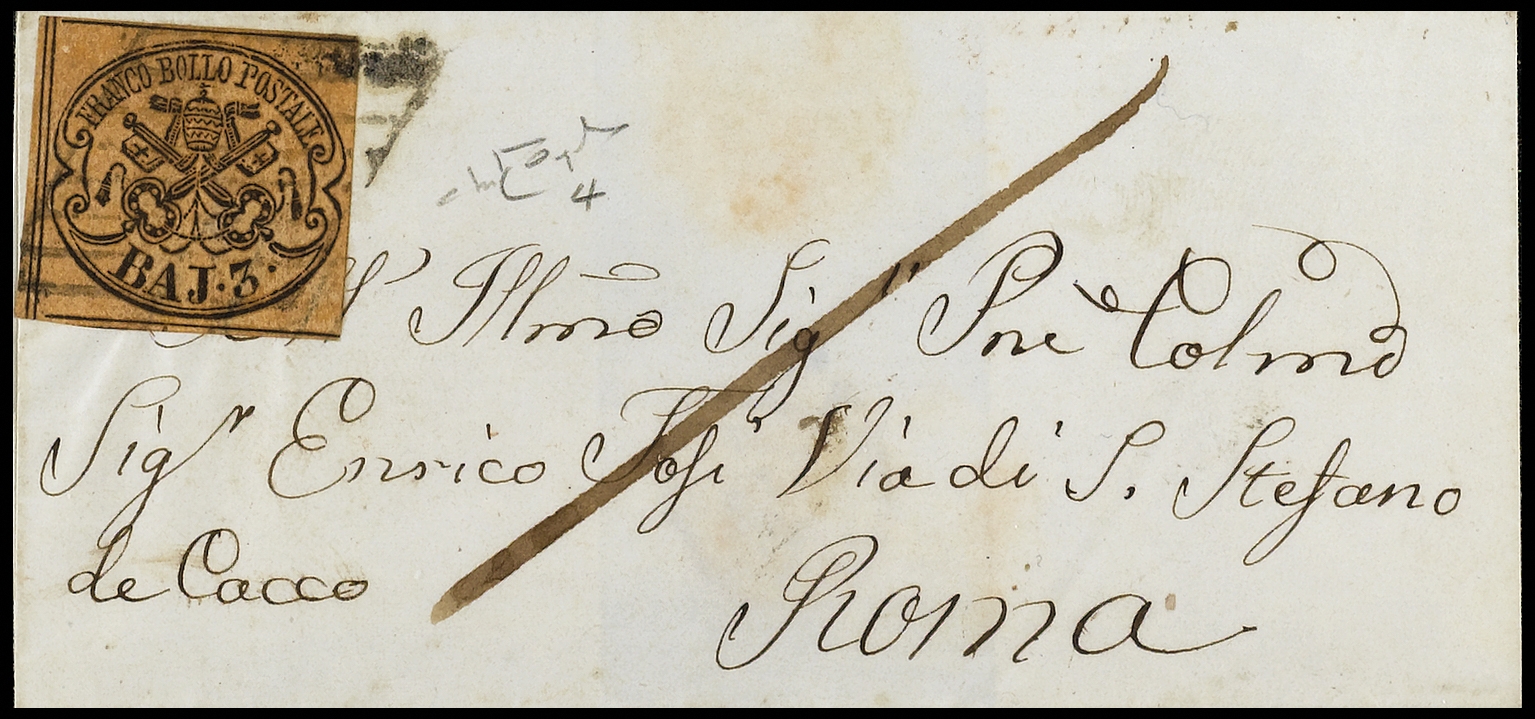 FRANCO BOLLO POSTALE
BAJ. 3.
4
Illmo Sig Pne Colmo
Sigr Enrico Tosi Via di S. Stefano
de Cacco
Roma